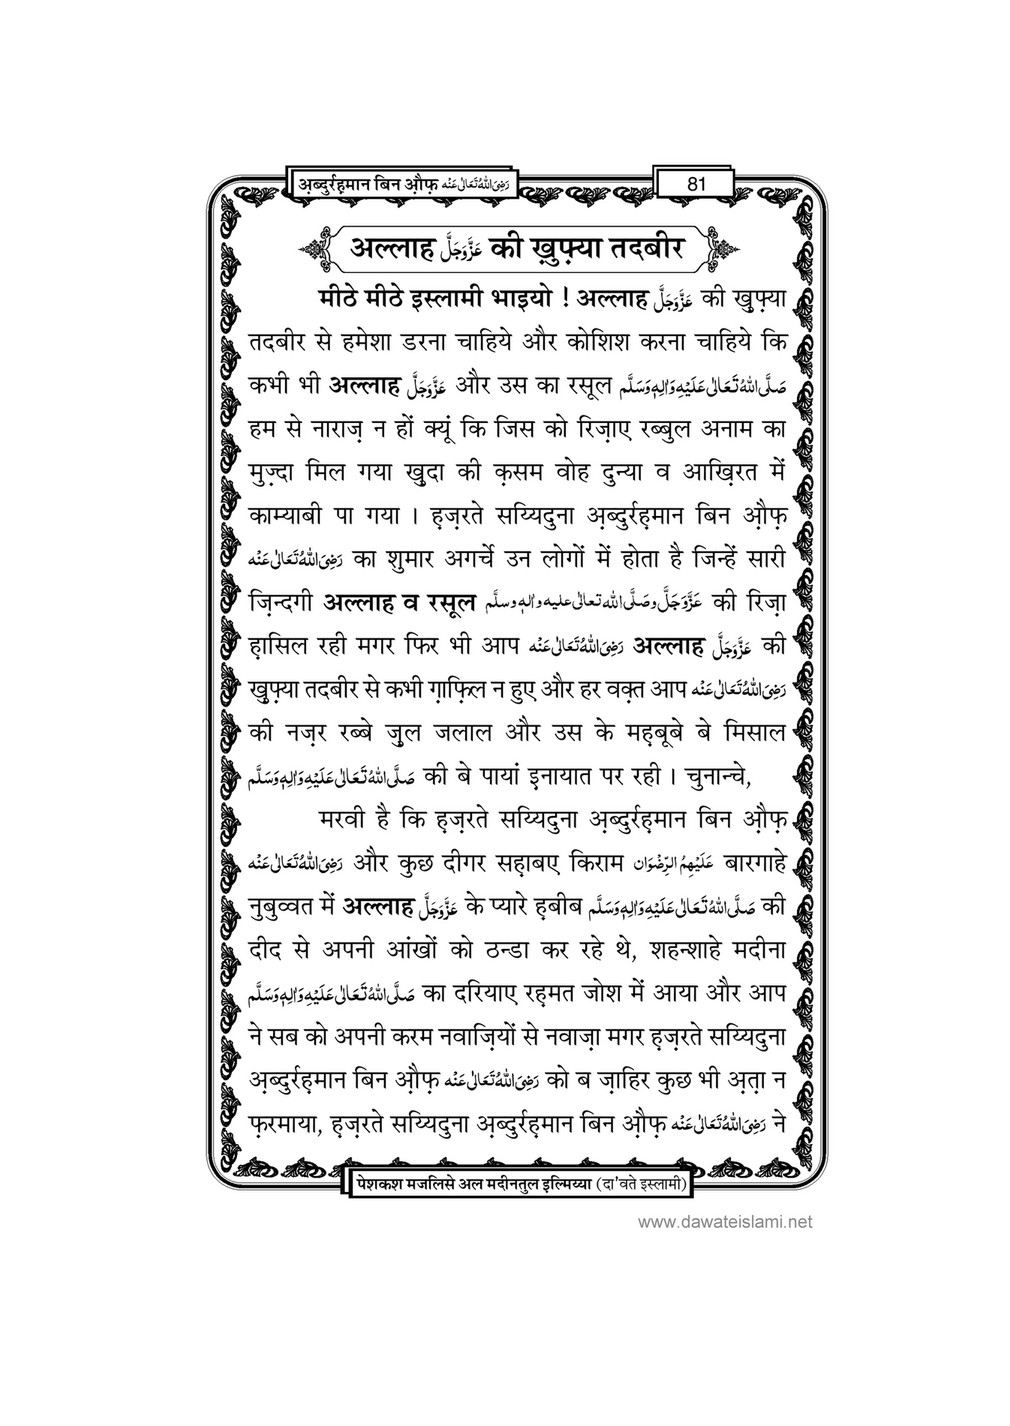 अ़ब्दुर्रह़मान बिन औ़फ़ رَضِیَ اللہُ تَعَالٰی عَنْہ
81
अल्लाह عَزَّوَجَلَّ की ख़ुफ़्या तदबीर
मीठे मीठे इस्लामी भाइयो ! अल्लाह عَزَّوَجَلَّ की ख़ुफ़्या
तदबीर से हमेशा डरना चाहिये और कोशिश करना चाहिये कि
कभी भी अल्लाह عَزَّوَجَلَّ और उस का रसूल صَلَّی اللہُ تَعَالٰی عَلَیْہِ وَاٰلِہٖ وَسَلَّم
हम से नाराज़ न हों क्यूं कि जिस को रिज़ाए रब्बुल अनाम का
मुज़्दा मिल गया ख़ुदा की क़सम वोह दुन्या व आख़िरत में
काम्याबी पा गया । ह़ज़रते सय्यिदुना अ़ब्दुर्रह़मान बिन औ़फ़
رَضِیَ اللہُ تَعَالٰی عَنْہ का शुमार अगर्चे उन लोगों में होता है जिन्हें सारी
ज़िन्दगी अल्लाह व रसूल عَزَّوَجَلَّ وصَلَّی اللہ تعالٰی علیہ واٰلہٖ وسلَّم की रिज़ा
ह़ासिल रही मगर फिर भी आप رَضِیَ اللہُ تَعَالٰی عَنْہ अल्लाह عَزَّوَجَلَّ की
ख़ुफ़्या तदबीर से कभी ग़ाफ़िल न हुए और हर वक़्त आप رَضِیَ اللہُ تَعَالٰی عَنْہ
की नज़र रब्बे ज़ुल जलाल और उस के मह़बूबे बे मिसाल
صَلَّی اللہُ تَعَالٰی عَلَیْہِ وَاٰلِہٖ وَسَلَّم की बे पायां इ़नायात पर रही । चुनान्चे,
मरवी है कि ह़ज़रते सय्यिदुना अ़ब्दुर्रह़मान बिन औ़फ़
رَضِیَ اللہُ تَعَالٰی عَنْہ और कुछ दीगर सह़ाबए किराम عَلَیْہِمُ الرِّضْوَان बारगाहे
नुबुव्वत में अल्लाह عَزَّوَجَلَّ के प्यारे ह़बीब صَلَّی اللہُ تَعَالٰی عَلَیْہِ وَاٰلِہٖ وَسَلَّم की
दीद से अपनी आंखों को ठन्डा कर रहे थे, शहन्शाहे मदीना
صَلَّی اللہُ تَعَالٰی عَلَیْہِ وَاٰلِہٖ وَسَلَّم का दरियाए रह़मत जोश में आया और आप
ने सब को अपनी करम नवाज़ियों से नवाज़ा मगर ह़ज़रते सय्यिदुना
अ़ब्दुर्रह़मान बिन औ़फ़ رَضِیَ اللہُ تَعَالٰی عَنْہ को ब ज़ाहिर कुछ भी अ़त़ा न
फ़रमाया, ह़ज़रते सय्यिदुना अ़ब्दुर्रह़मान बिन औ़फ़ رَضِیَ اللہُ تَعَالٰی عَنْہ ने
पेशकश मजलिसे अल मदीनतुल इल्मिय्या (दा'वते इस्लामी)
www.dawateislami.net